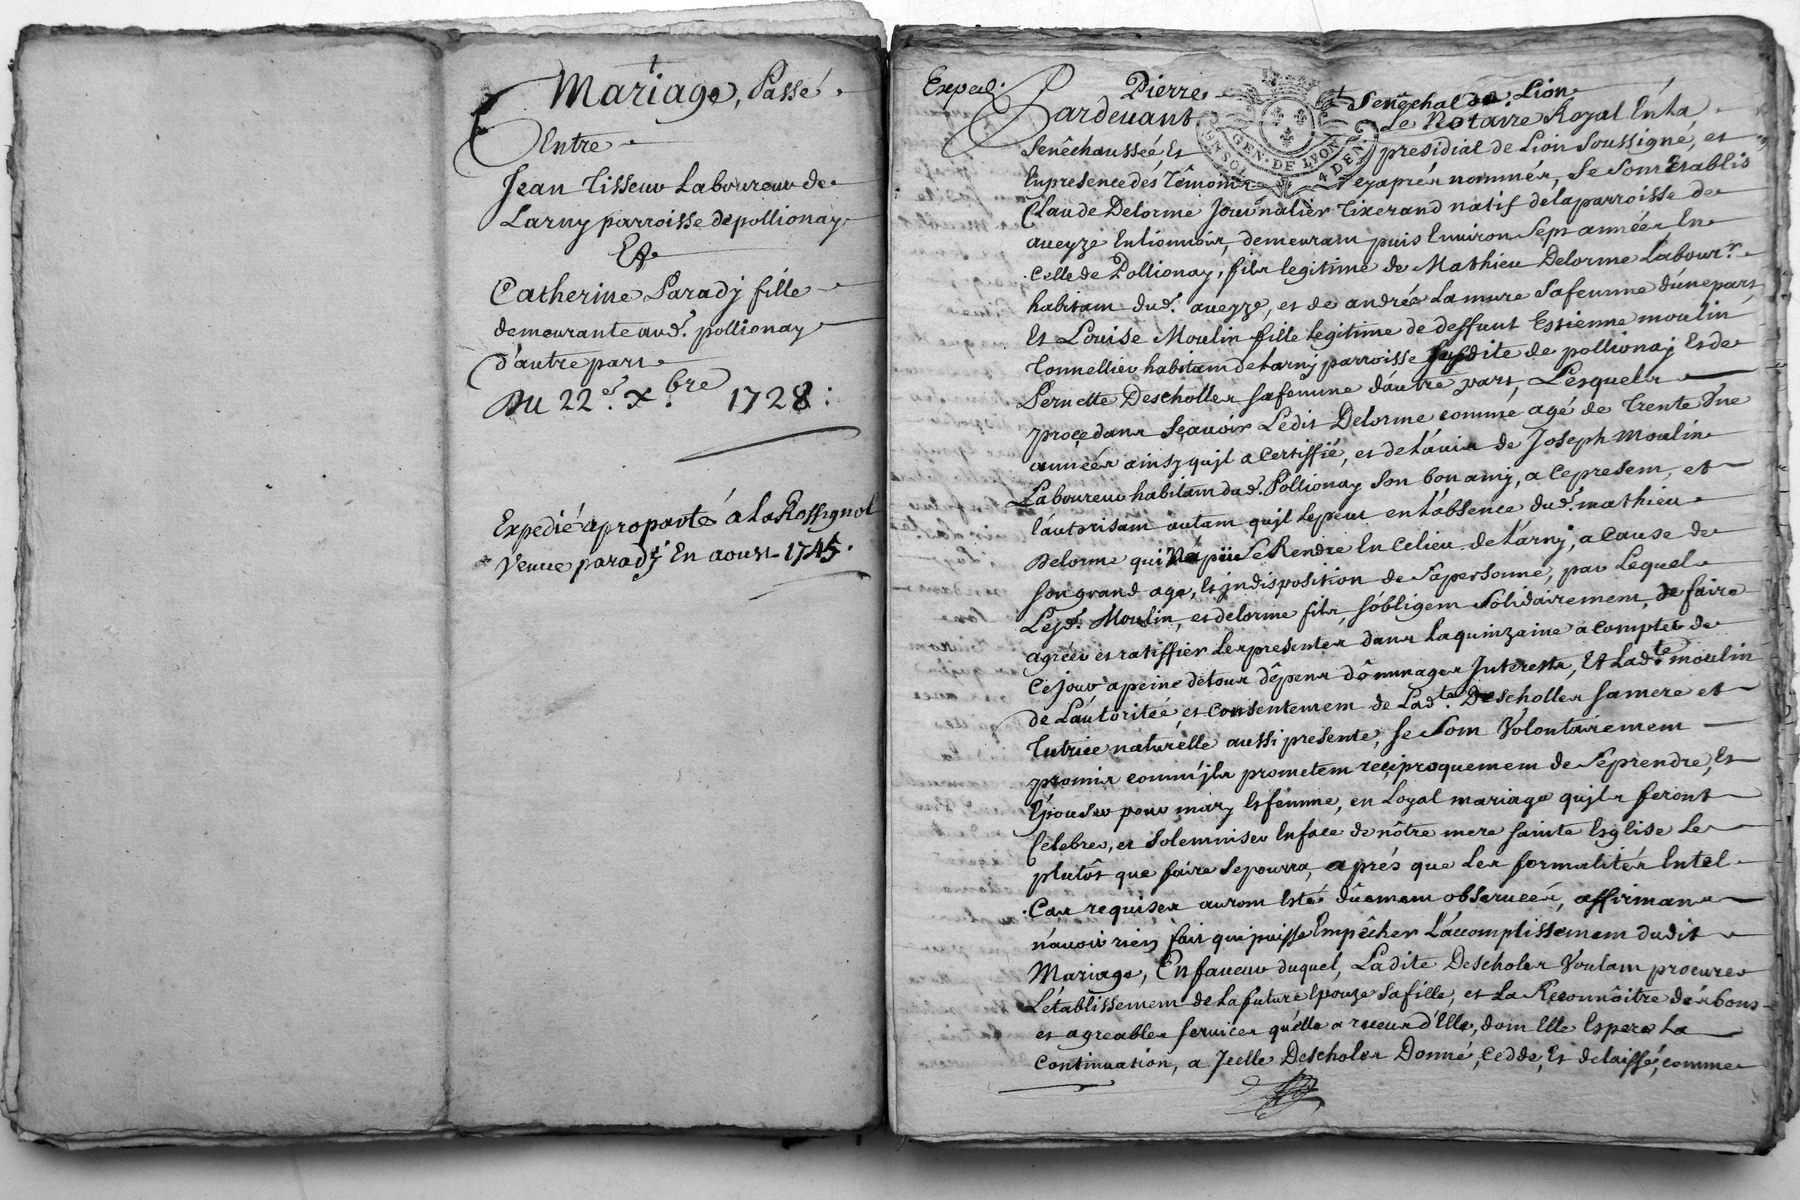 Mariage, Passé
Entre
Jean Tisseur Laboureur de
Larny parroisse de pollionay
Et
Catherine Parady fille
demeurante aud.t pollionay
d'autre part
Du 22.e x.bre 1728:
Expedié a proparté à La Rossignol
Veuve parady En aoust 1745.
Exped.
Pierre Sénêchal de Lion
Pardevant Le Notaire Royal En la
GEN. DE LYON
4 DEN.
Senêchaussée, Et presidial de Lion Soussigné, et
En presence dés Têmoins cy aprés nommés, Se Sont Etablis
Claude Delorme Journalier Tixerand natif de la parroisse de
aveyze En lionnois, demeurant puis Environ Sept années En
celle de Pollionay, fils legitime de Mathieu Delorme Labour.r
habitant dud.t aveyze, et de andrée Lamure Sa femme d'une part,
Et Louise Moulin fille legitime de deffunt Estienne moulin
Tonnellier habitant de Larny parroisse susdite de pollionay Et de
Pernette Descholles sa femme d'autre part, Lesquels
procedans Sçavoir Ledit Delorme comme agé de Trente Une
années ainsy qu'jl a Certiffié, et de L'avis de Joseph Moulin
Laboureur habitant dud.t Pollionay Son bon amy, a Ce present, et
l'autorisant autant qu'jl Le peut en L'absence dud.t mathieu
Delorme qui N'a pü Se Rendre En Ce lieu de Larny, a Cause de
son grand age, Et jndisposition de Sa personne, par Lequel
Led.t Moulin, et delorme fils, s'obligent Solidairement, de faire
agréer et ratiffier Les presentes dans La quinzaine a compter de
Ce Jour a peine de tous dêpens dômmages Jnterests, Et Lad.te moulin
de L'autoritée et consentement de Lad.te Descholles sa mere et
Tutrice naturelle aussi presente, se Sont Volontairement
promis comm'jls prometent reciproquement de Se prendre, Et
Epouser pour mary Et femme, en Loyal mariage qu'jls feront
Célebrer, et Solemniser En face de nôtre mere sainte Eglise Le
plutôt que faire Se pourra, aprés que Les formalités En tel
Cas requises auront Esté dûement observées, affirmans
n'avoir rien fait qui puisse Empêcher L'accomplissement dudit
Mariage, En faveur duquel, Ladite Descholes Voulant procurer
L'établissement de La future Epouze Sa fille, et La Reconnôitre dés bons
et agreables services qu'elle a receus d'Elle, dont Elle Espere La
continuation, a Jcelle Descholes Donné, Cedde, Et delaissé, comme